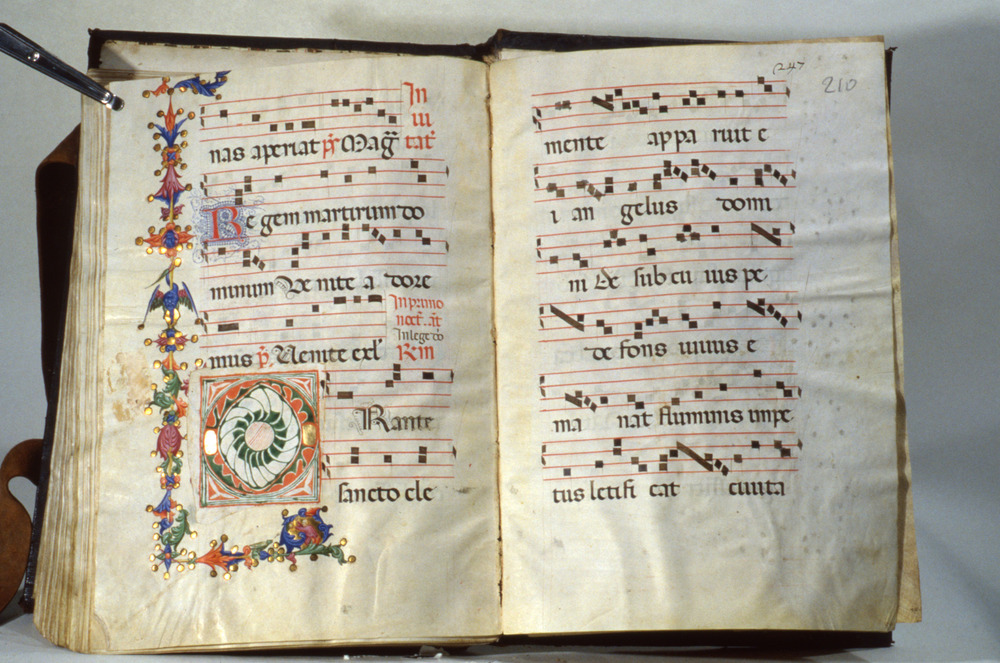 In
ui
nas aperiat pr̄ Mag̅ tat̄
Re gem martirum do
minum Ve nite a dore
In primo
noct. an̄
In lege dō
mus p̄. Uenite exl' Rm̄
Rante
sancto cle
247
210
mente appa ruit e
i an gelus domi
ni De sub cu ius pe
de fons uiuus e
ma nat fluminis impe
tus letifi cat cunta